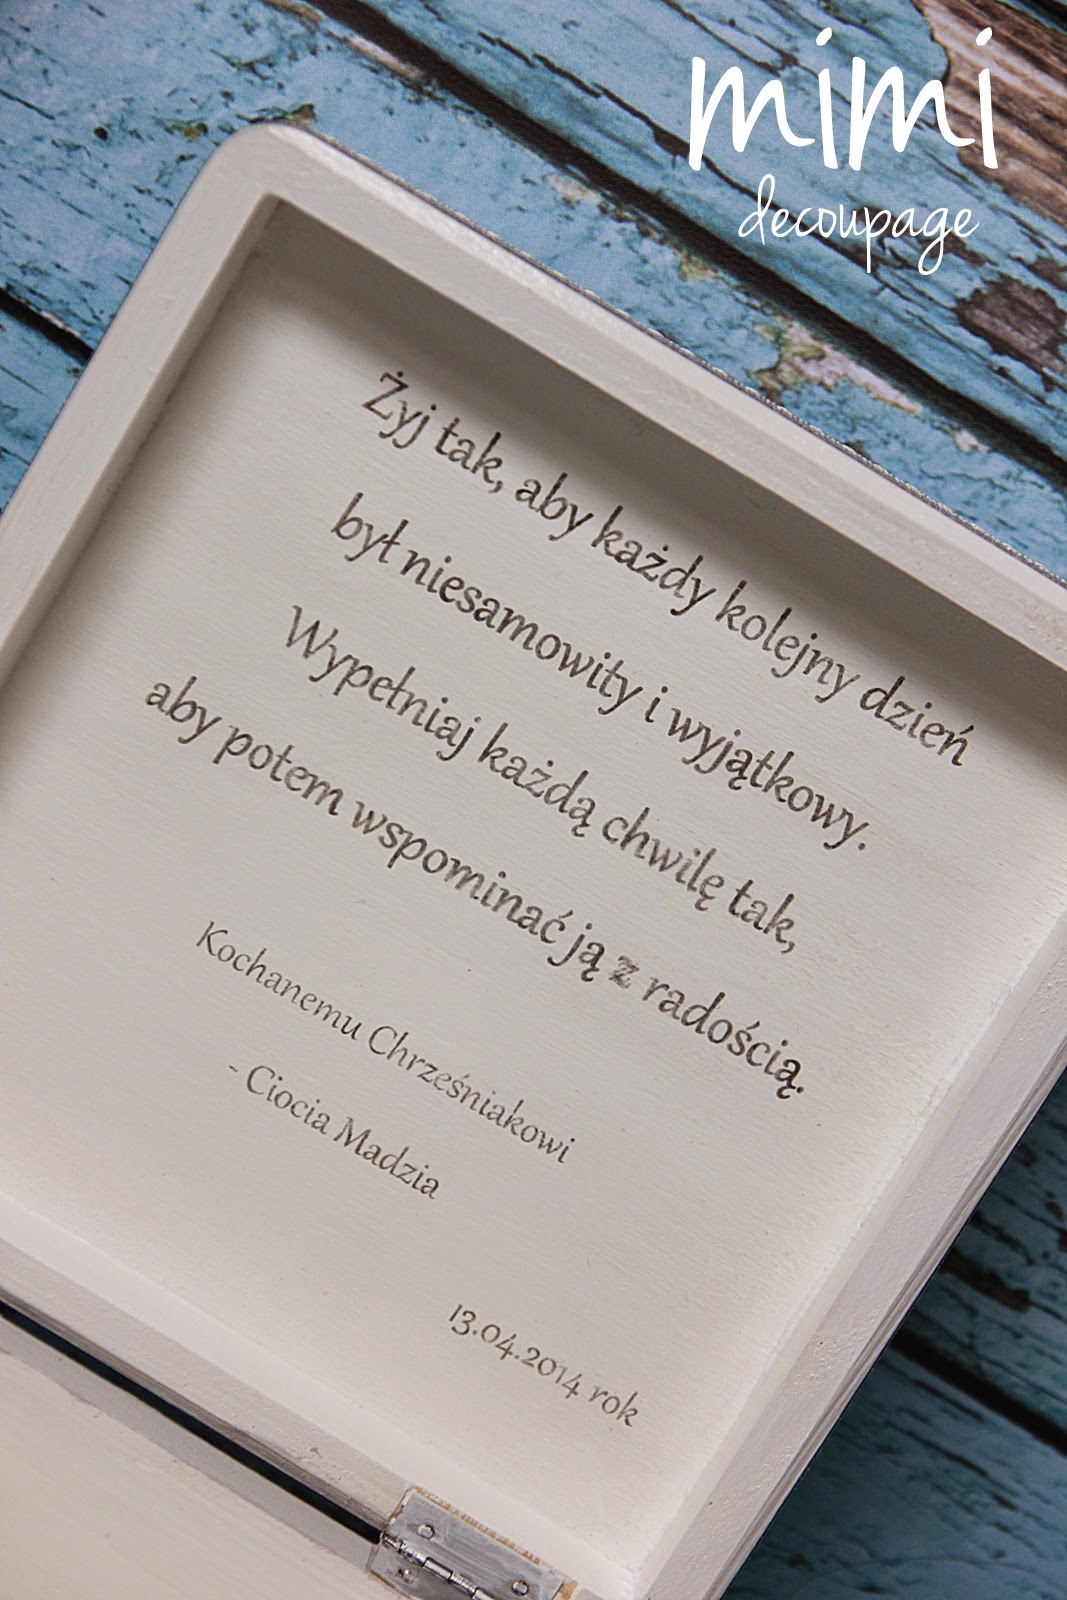 mimi
decoupage
Żyj tak, aby każdy kolejny dzień
był niesamowity i wyjątkowy.
Wypełniaj każdą chwilę tak,
aby potem wspominać ją z radością.
Kochanemu Chrześniakowi
- Ciocia Madzia
13.04.2014 rok